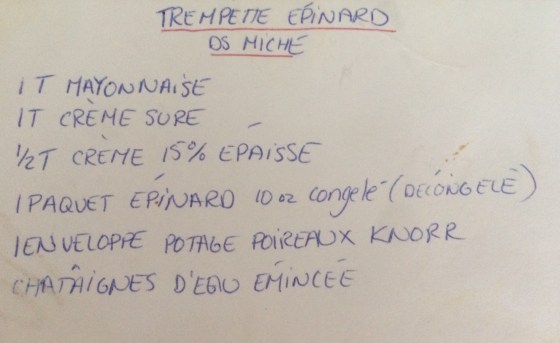 TREMPETTE ÉPINARD
DS MICHE
1 T MAYONNAISE
1T CRÈME SURE
1/2T CRÈME 15% ÉPAISSE
1 PAQUET ÉPINARD 10 oz congelé (DÉCONGELÉ)
1 ENVELOPPE POTAGE POIREAUX KNORR
CHATÂIGNES D'EAU ÉMINCÉE